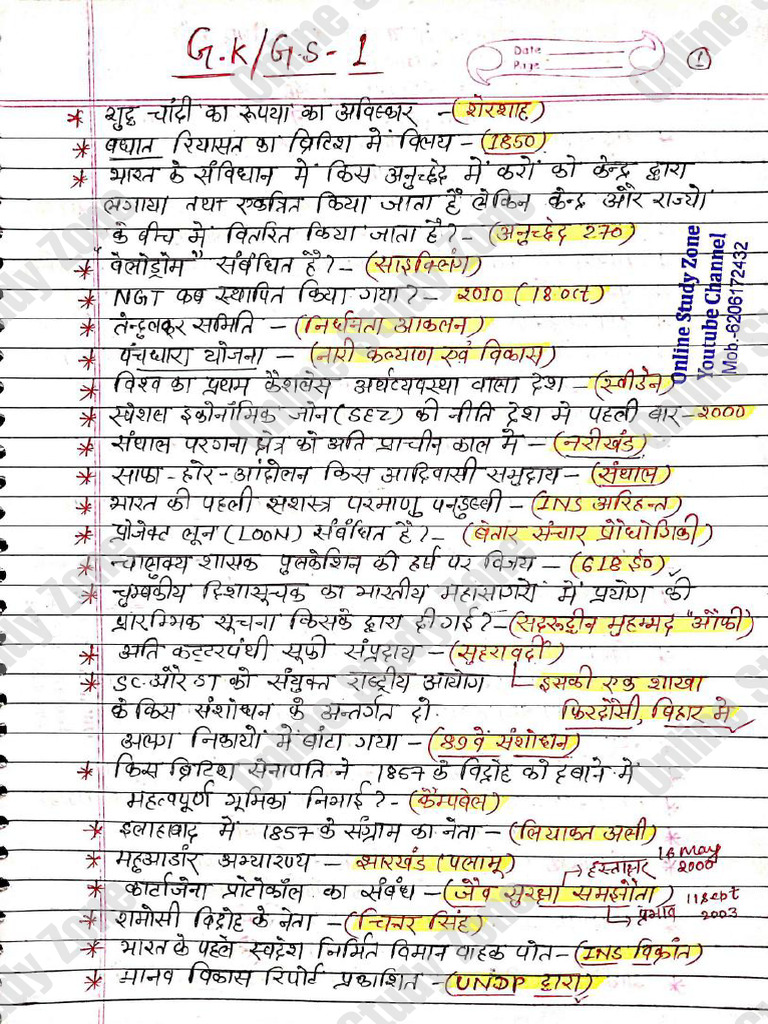 G.K/G.S-1
Date
Page
1
* शुद्ध चांदी का रूपया का अविष्कार - (शेरशाह)
* वघात रियासत का ब्रिटिश में विलय - (1850)
* भारत के संविधान में किस अनुच्छेद में करों को केन्द्र द्वारा
लगाया तथा एकत्रित किया जाता है लेकिन केन्द्र और राज्यों
के बीच में वितरित किया जाता है? - (अनुच्छेद 270)
* "वेलोड्रोम" संबंधित है? - (साइक्लिंग)
* NGT कब स्थापित किया गया? - 2010 (18 Oct)
* तेन्दुलकर समिति - (निर्धनता आकलन)
* पंचधारा योजना - (नारी कल्याण एवं विकास)
* विश्व का प्रथम कैशलेस अर्थव्यवस्था वाला देश - (स्वीडेन)
* स्पेशल इकोनॉमिक जोन (SEZ) की नीति देश में पहली बार - 2000
* संथाल परगना क्षेत्र को अति प्राचीन काल में - (नरीखंड)
* साफा-होर-आंदोलन किस आदिवासी समुदाय - (संथाल)
* भारत की पहली सशस्त्र परमाणु पनडुब्बी - (INS अरिहन्त)
* प्रोजेक्ट लून (LOON) संबंधित है? - (बेतार संचार प्रौद्योगिकी)
* चालुक्य शासक पुलकेशिन की हर्ष पर विजय - (618 ई०)
* चुम्बकीय दिशासूचक का भारतीय महासागरों में प्रयोग की
प्रारम्भिक सूचना किसके द्वारा दी गई? - (सदरुद्दीन मुहम्मद "औफी")
* अति कट्टरपंथी सूफी संप्रदाय - (सुहरावर्दी)
* SC और ST को संयुक्त राष्ट्रीय आयोग इसकी एक शाखा
के किस संशोधन के अन्तर्गत दो फिरदौसी, बिहार में
अलग निकायों में बांटा गया - (89वें संशोधन)
* किस ब्रिटिश सेनापति ने 1857 के विद्रोह को दबाने में
महत्वपूर्ण भूमिका निभाई? - (कैम्पबेल)
* इलाहाबाद में 1857 के संग्राम का नेता - (लियाकत अली)
* महुआडांर अभ्यारण्य - झारखंड (पलामू)
हस्ताक्षर 16 May 2000
* कार्टाजेना प्रोटोकॉल का संबंध - (जैव सुरक्षा समझौता)
प्रभाव 11 Sept 2003
* रामोसी विद्रोह के नेता - (चित्तर सिंह)
* भारत के पहले स्वदेश निर्मित विमान वाहक पोत - (INS विक्रांत)
* मानव विकास रिपोर्ट प्रकाशित - (UNDP द्वारा)
Online Study Zone
Youtube Channel
Mob.-6206172432
Online Study Zone